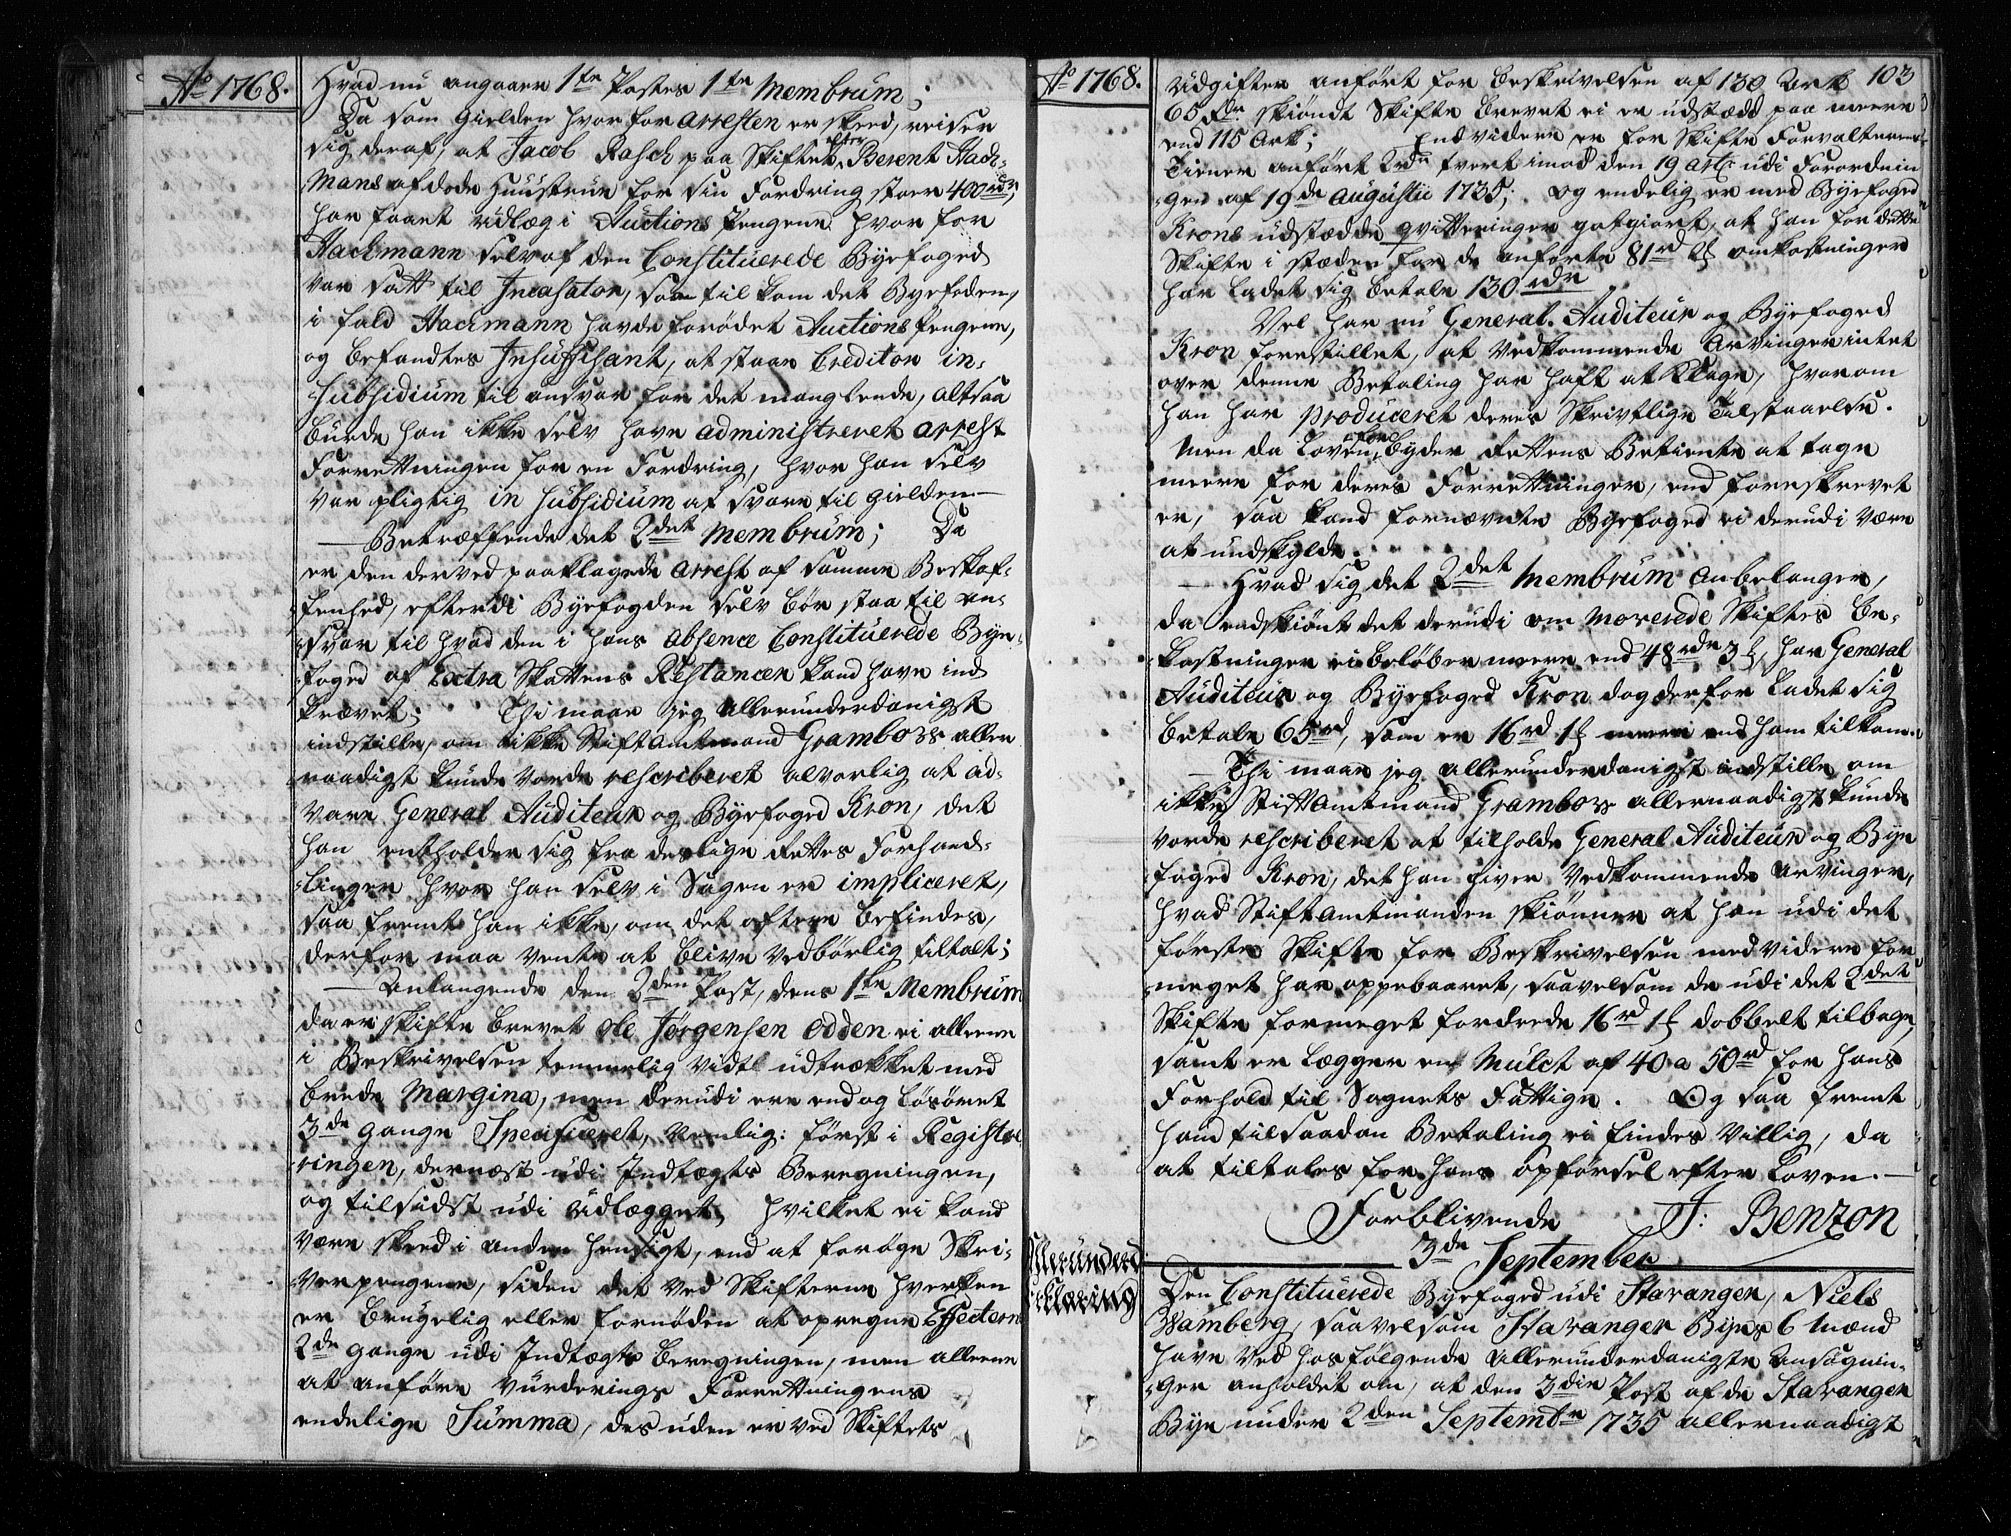 Ao 1768.
Hvad nu angaaer 1te Postes 1te Membrum;
Da som Gielden hvor for Arresten er skeed, reiser
sig deraf, at Jacob Rasch paa Skiftet efter Berent Hach-
mans afdøde Huustrue for sin Fordring stoer 400rdr,
har faaet udlæg i Auctions Pengene hvor for
Hachmann selv af den Constituerede Byefoged
var satt til Incasator, som til kom det Byefoden,
i fald Hachmann havde forødet Auctions Pengene,
og befandtes Insuffisant, at staae Creditor in-
Subsidium til ansvar for det manglende, altsaa
burde han ikke selv have administreret Arrest
Forretningen for en Fordring, hvor han selv
var pligtig in Subsidium at svare til Gielden.
Betræffende det 2det Membrum; Da
er den derved paaklagede Arrest af samme Beskaf-
fenhed, efterdi Byefogden selv bør staa til an-
svar til hvad den i hans absence Constituerede Bye-
foged af Extra Skattens Restancer kand have ind
krævet; Thi maae jeg allerunderdanigst
indstille, om ikke Stiftamtmand Gramboss aller
naadigst kunde vorde rescriberet alvorlig at ad-
vare General Auditeur og Byefoged Kron, det
han entholder sig fra deslige Rettes Forhand-
linger hvor han selv i Sagen er impliceret,
saa fremt han ikke, om det oftere befindes,
derfor maa vente at blive vedbørlig tiltalt;
Anlangende den 2den Post, dens 1te Membrum
da er Skifte brevet Ole Jørgensen Odden ei alleene
i Beskrivelsen temmelig vidtl udtrækket med
brede Margina, men derudi ere endog Løsøret
3de gange Specificeret, nemlig: først i Registre
ringen, dernæst udi Indtægts Beregningen,
og tilsidst udi Udlægget, hvilket ei kand
være skeed i anden hensigt, end at forøge Skri-
verpengene, siden det ved Skifterne hverken
er brugelig eller fornøden at opregne Effecterne
2de gange udi Indtægts beregningen, men alleene
at anføre Vurderings Forretningens
endelige Summa, des uden er ved Skiftets
Ao 1768.
103
Udgifter anført for beskrivelsen af 130 Ark
65 rdr skiøndt Skifte brevet ei er udstædt paa meere
end 115 Ark; Endvidere er for Skifte Forvalterens
Tiener anført 2rdr tvert imod den 19 Art: udi Forordnin
gen af 19de Augustii 1735; og endelig er med Byefoged
Krons udstædde qvitteringer gotgiort, at han for dette
Skifte i stæden for de anførte 81rd 2 omkostninger
har ladet sig betale 130rdr
Vel har nu General-Auditeur og Byefoged
Kron forestillet, at Vedkommende Arvinger intet
over denne Betaling har haft at klage, hvorom
han har produceret deres Skrivtlige tilstaaelse.
Men da Loven forbyder Rettens Betiente at tage
meere for deres Forretninger, end foreskrevet
er, saa kand fornævnte Byefoged ei derudi være
at undskylde.
Hvad sig det 2det Membrum anbelanger,
da endskiønt det derudi om moverede Skiftes be-
kostninger ei beløber meere end 48rdr 3, har General
Auditeur og Byefoged Kron dog derfor ladet sig
betale 65rd, som er 16rd 1 meere end ham tilkom.
Thi maae jeg allerunderdanigst indstille om
ikke Stiftamtmand Gramboss allernaadigst kunde
vorde rescriberet at tilholde General Auditeur og Bye
foged Kron, det han giver Vedkommende Arvinger,
hvad Stiftamtmanden skiønner at han udi det
første Skifte for Beskrivelsen med videre for
meget har oppebaaret, saavelsom de udi det 2det
Skifte formeget fordrede 16rd 1 dobbelt tilbage,
samt er lægger en Mulct af 40 a 50rd for hans
Forhold til Sognets Fattige. Og saa fremt
hand til saadan Betaling ei findes villig, da
at tiltales for hans opførsel efter Loven.
Forblivende J: Benzon
3de September
Allerunderd
Erklæring
Den Constituerede Byefoged udi Stavanger, Niels
Wamberg, saavelsom Stavanger Byes 6 Mænd
have ved hosfølgende allerunderdanigste Ansøgnin-
ger anholdet om, at den 3die Post af de Stavanger
Bye under 2den Septembr 1735 allernaadigst